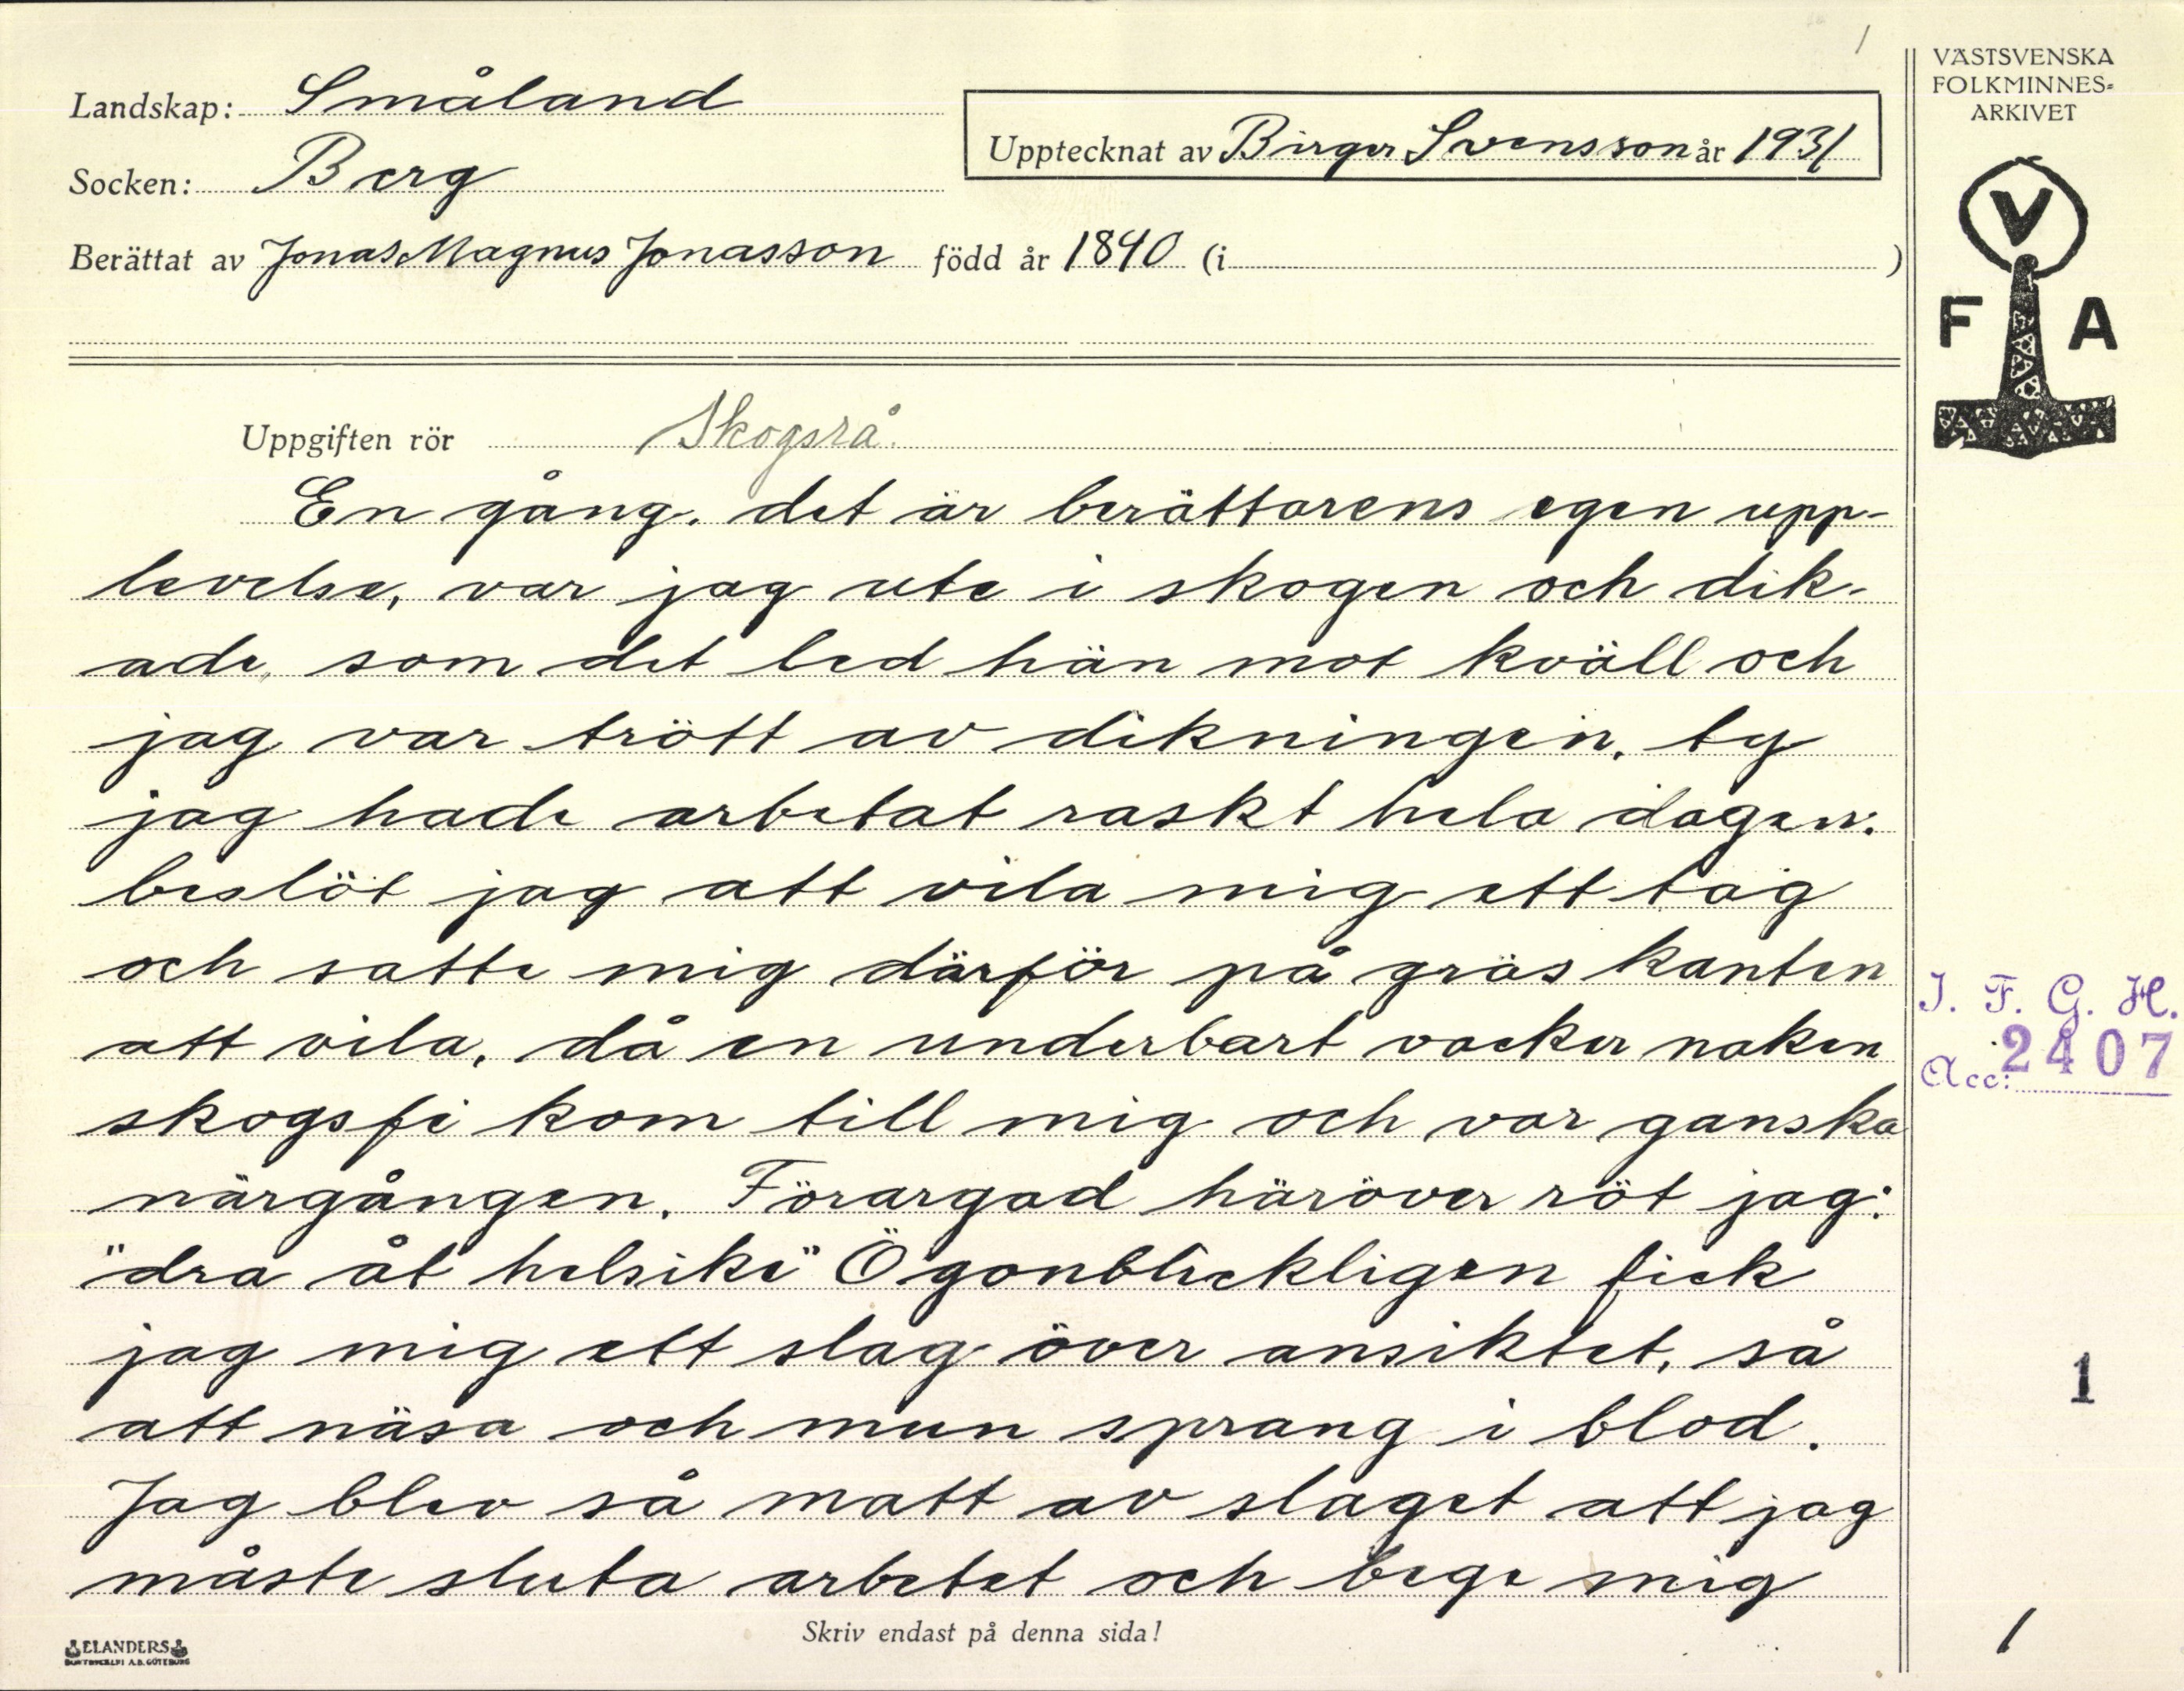 1
VÄSTSVENSKA
FOLKMINNES-
ARKIVET
Landskap: Småland
Upptecknat av Birger Svensson år 1931
Socken: Berg
Berättat av Jonas Magnus Jonasson född år 1840 (i )
V
F A
Uppgiften rör Skogsrå.
En gång. det är berättarens egen upp-
levelse, var jag ute i skogen och dik-
ade, som det led hän mot kväll och
jag var trött av dikningen, ty
jag hade arbetat raskt hela dagen.
beslöt jag att vila mig ett tag
och satte mig därför på gräs kanten
att vila, då en underbart vacker naken
skogsfi kom till mig och var ganska
närgången. Förargad häröver röt jag:
"dra åt helsike" Ögonblickligen fick
jag mig ett slag över ansiktet, så
att näsa och mun sprang i blod.
Jag blev så matt av slaget att jag
måste sluta arbetet och bege mig
I. F. G. H.
Acc: 2407
1
Skriv endast på denna sida!
ELANDERS
BOKTRYCKERI A.B. GÖTEBORG
1